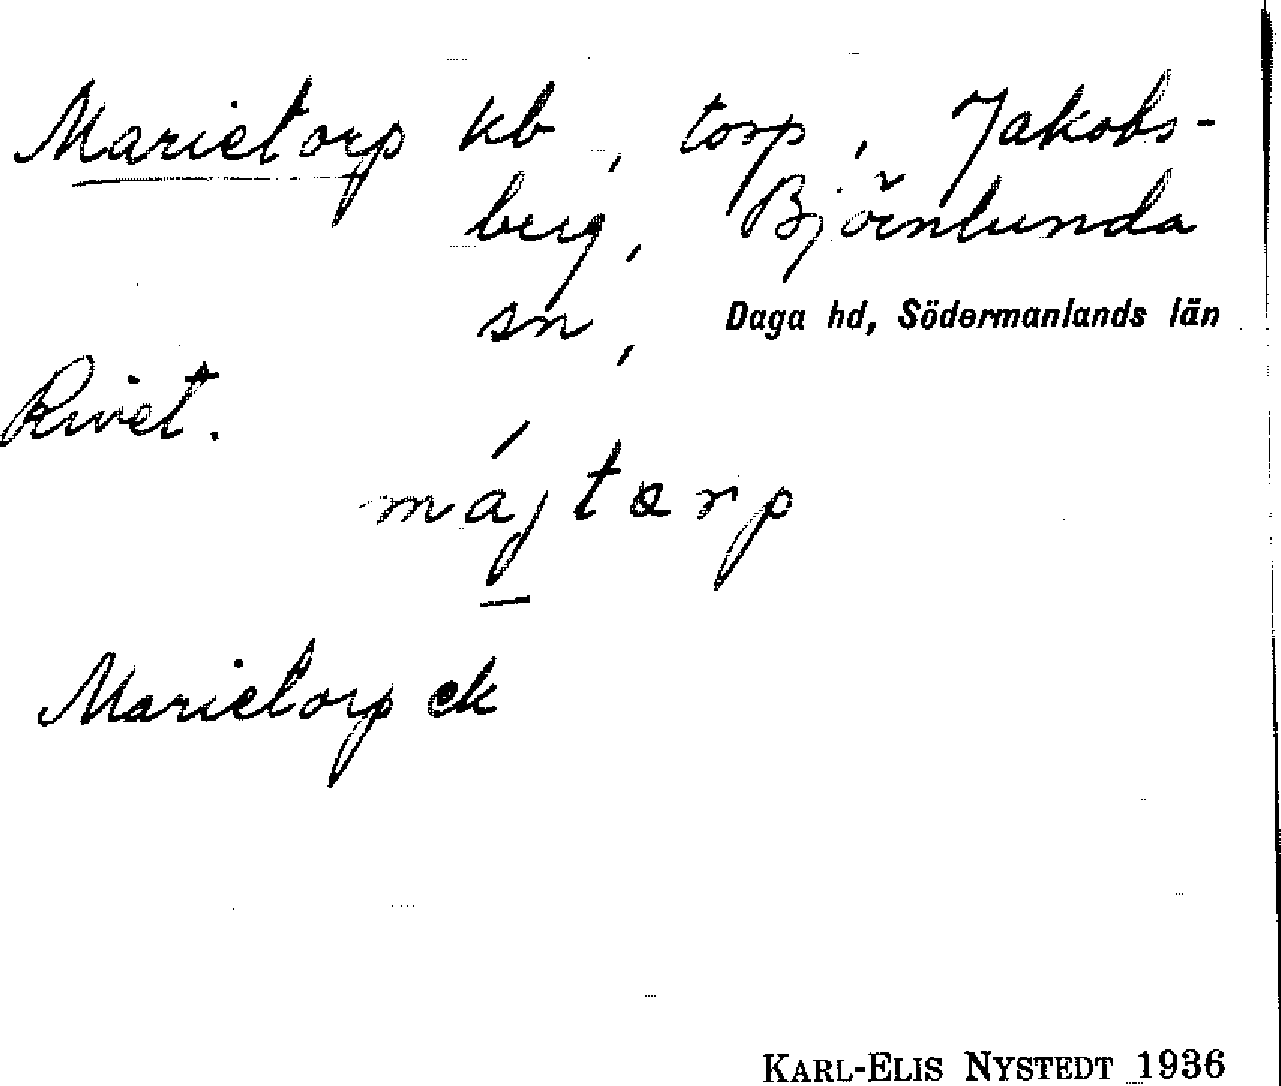 Marietorp kb, torp, Jakobs-
berg, Björnlunda
sn, Daga hd, Södermanlands län
Rivet.
májtorp
Marietorp ek
KARL-ELIS NYSTEDT 1936